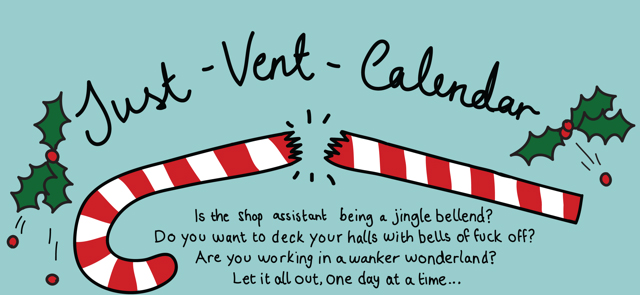 Just - Vent - Calendar
Is the shop assistant being a jingle bellend?
Do you want to deck your halls with bells of fuck off?
Are you working in a wanker wonderland?
Let it all out, one day at a time...